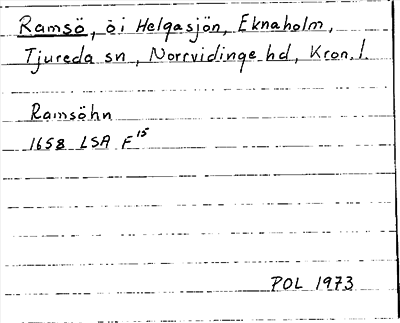 Ramsö, ö i Helgasjön, Eknaholm,
Tjureda sn, Norrvidinge hd, Kron. l.
Ramsöhn
1658 LSA F 15
POL 1973